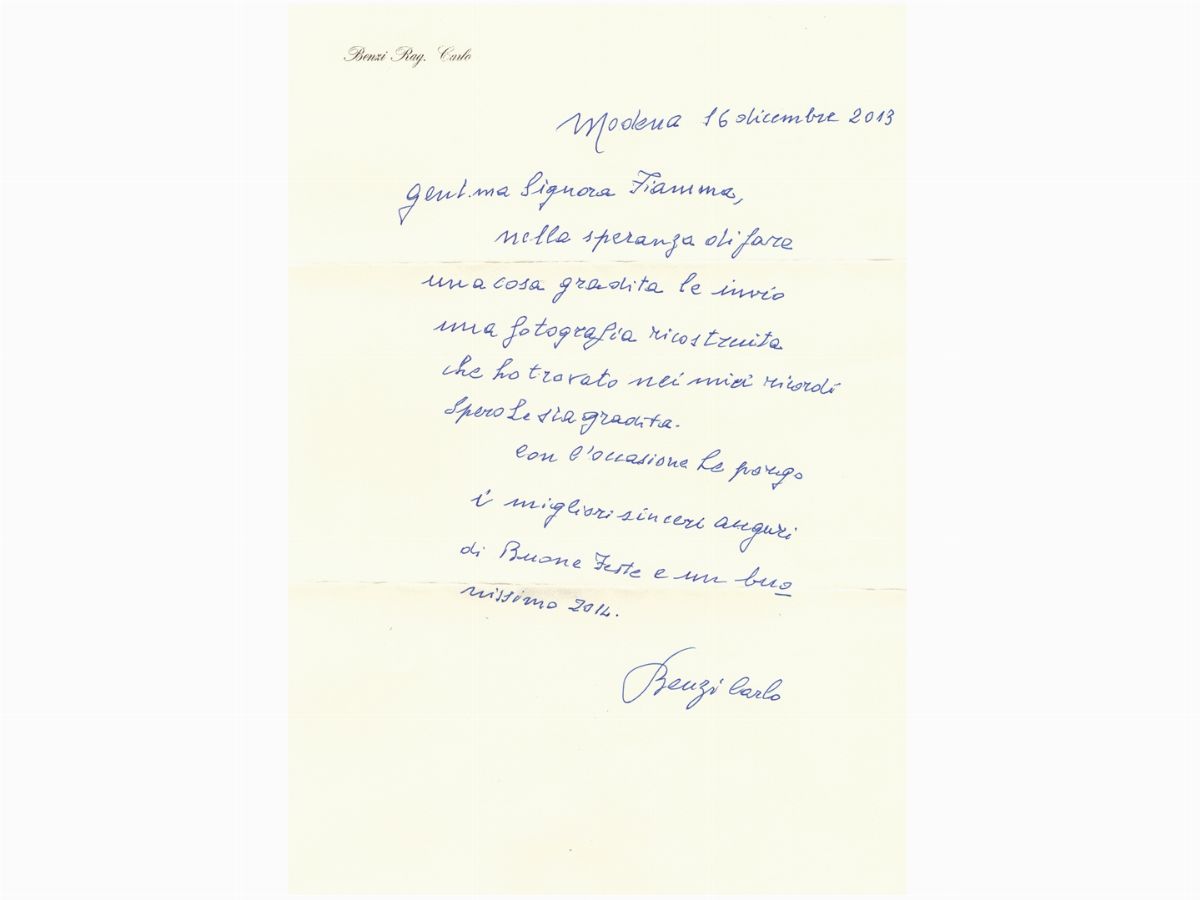 Benzi Rag. Carlo
Modena 16 dicembre 2013
Gent.ma Signora Fiamma,
nella speranza di fare
una cosa gradita le invio
una fotografia ricostruita
che ho trovato nei miei ricordi
Spero Le sia gradita.
con l'occasione Le porgo
i migliori sinceri auguri
di Buone Feste e un buo
nissimo 2014.
Benzi Carlo